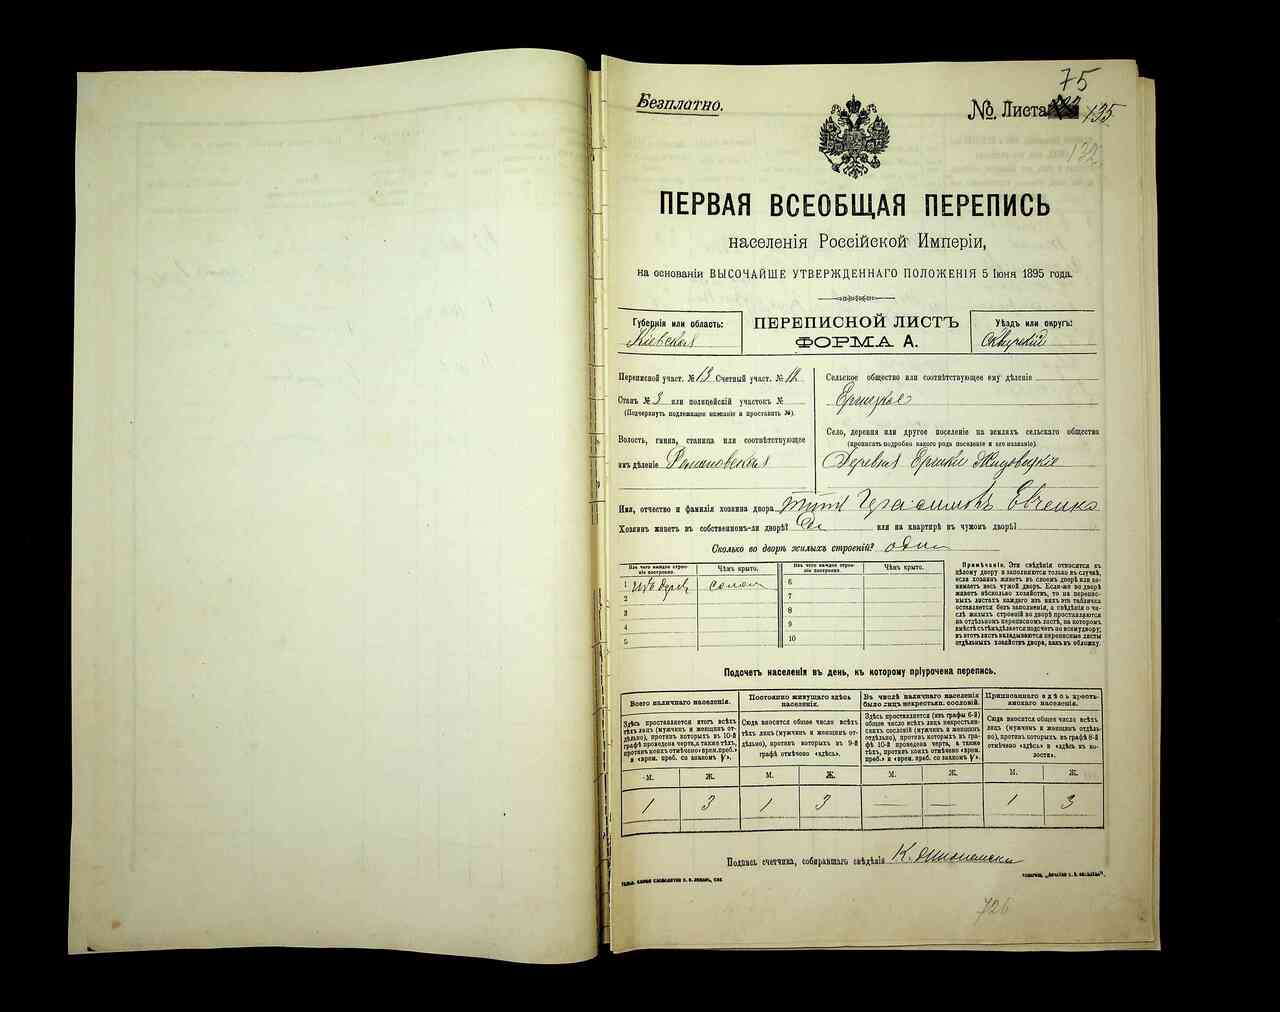 75
Безплатно.
№. Листа 135
132
ПЕРВАЯ ВСЕОБЩАЯ ПЕРЕПИСЬ
населенія Россійской Имперіи,
на основаніи ВЫСОЧАЙШЕ УТВЕРЖДЕННАГО ПОЛОЖЕНІЯ 5 Іюня 1895 года.
Губернія или область:
Кіевская
ПЕРЕПИСНОЙ ЛИСТЪ
ФОРМА А.
Уѣздъ или округъ:
Сквирскій
Переписной участ. № 13 Счетный участ. № 12
Станъ № 3 или полицейскій участокъ №
(Подчеркнуть подлежащее названіе и проставить №).
Волость, гмина, станица или соотвѣтствующее
имъ дѣленіе Романовская
Сельское общество или соотвѣтствующее ему дѣленіе
Ерчицкое
Село, деревня или другое поселеніе на земляхъ сельскаго общества
(прописать подробно какого рода поселеніе и его названіе).
Деревня Ерчики
Имя, отчество и фамилія хозяина двора Титъ Герасимовъ Евченко
Хозяинъ живетъ въ собственномъ-ли дворѣ? или на квартирѣ въ чужомъ дворѣ?
Сколько во дворѣ жилыхъ строеній? одно
Изъ чего каждое строеніе построено.
Чѣмъ крыто.
Изъ чего каждое строеніе построено.
Чѣмъ крыто.
1 изъ дерев солом 6
2 7
3 8
4 9
5 10
Примѣчаніе. Эти свѣдѣнія относятся къ
цѣлому двору и заполняются только въ случаѣ,
если хозяинъ живетъ въ своемъ дворѣ или занимаетъ
весь чужой дворъ. Если-же во дворѣ
живетъ нѣсколько хозяйствъ, то на переписныхъ
листахъ каждаго изъ нихъ эта табличка
оставляется безъ заполненія, а свѣдѣнія о числѣ
жилыхъ строеній во дворѣ проставляются
на отдѣльномъ переписномъ листѣ, на которомъ
вмѣстѣ съ тѣмъ дѣлается подсчетъ по всему двору;
въ этотъ листъ вкладываются переписные листы
отдѣльныхъ хозяйствъ двора, какъ въ обложку.
Подсчетъ населенія въ день, къ которому пріурочена перепись.
Всего наличнаго населенія.
Постоянно живущаго здѣсь населенія.
Въ числѣ наличнаго населенія было лицъ некрестьян. сословій.
Приписаннаго здѣсь крестьянскаго населенія.
Здѣсь проставляется итогъ всѣхъ тѣхъ лицъ (мужчинъ и женщинъ отдѣльно), противъ которыхъ въ 10-й графѣ проведена черта, а также тѣхъ, противъ коихъ отмѣчено «врем. преб.» и «врем. преб. со знакомъ V».
Сюда вносится общее число всѣхъ тѣхъ лицъ (мужчинъ и женщинъ отдѣльно), противъ которыхъ въ 9-й графѣ отмѣчено «здѣсь».
Здѣсь проставляется (изъ графы 6-й) общее число всѣхъ лицъ некрестьянскихъ сословій (мужчинъ и женщинъ отдѣльно), противъ которыхъ въ графѣ 10-й проведена черта, а также тѣхъ, противъ коихъ отмѣчено «врем. преб.» и «врем. преб. со знакомъ V».
Сюда вносится общее число всѣхъ лицъ (мужчинъ и женщинъ отдѣльно), противъ которыхъ въ графѣ 8-й отмѣчено «здѣсь» и «здѣсь въ волости».
М. Ж. М. Ж. М. Ж. М. Ж.
1 3 1 3 — — 1 3
Подпись счетчика, собиравшаго свѣдѣнія
726